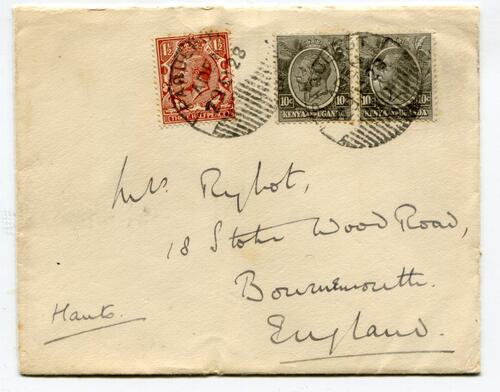 1½ 1½
THREE HALFPENCE
10c 10c
KENYA AND UGANDA
10c 10c
KENYA AND UGANDA
28
Mrs. Rybot,
18 Stoke Wood Road,
Bournemouth.
Hants.
England.